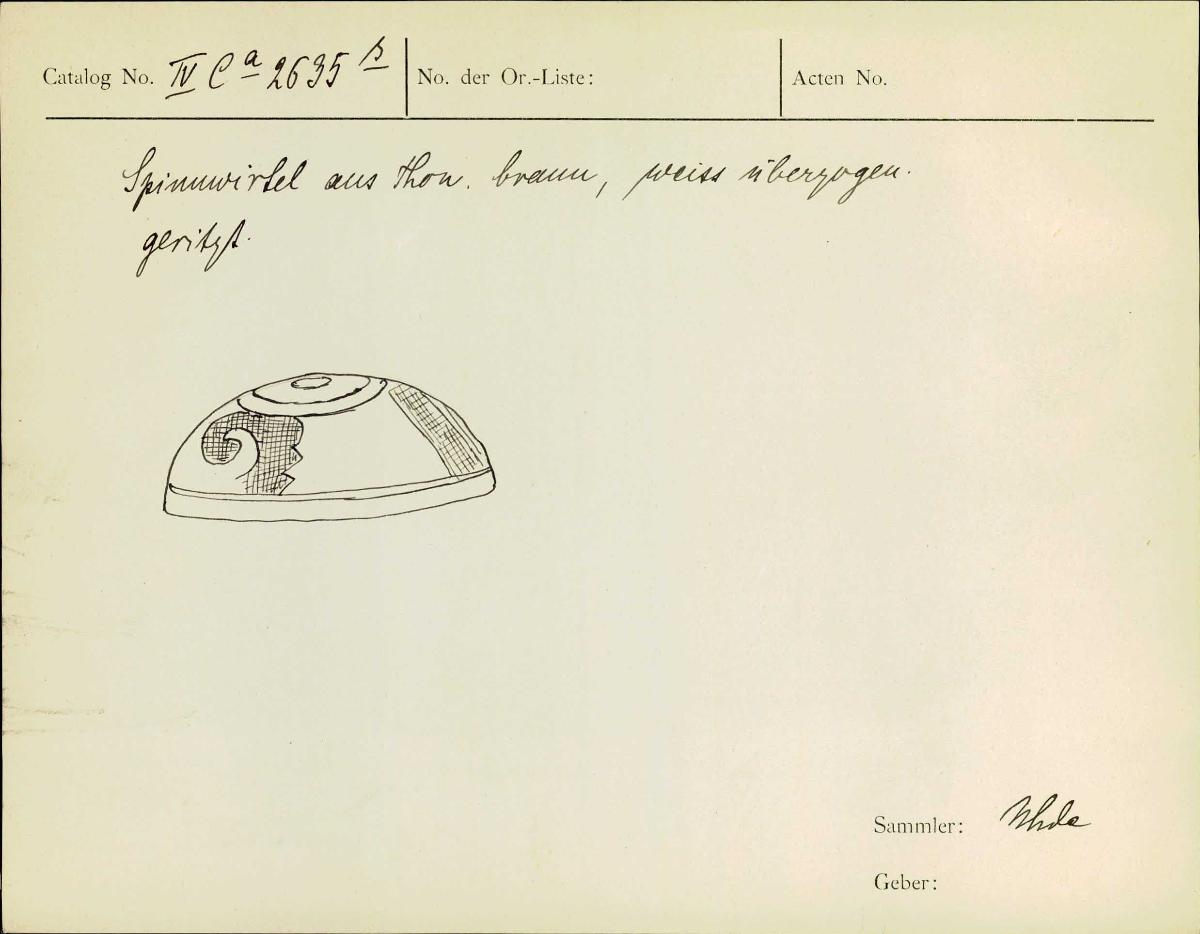 Catalog No. IV Ca 2635 s No. der Or.-Liste: Acten No.
Spinnwirtel aus Thon. braun, weiss überzogen.
geritzt.
Sammler: Uhde
Geber: